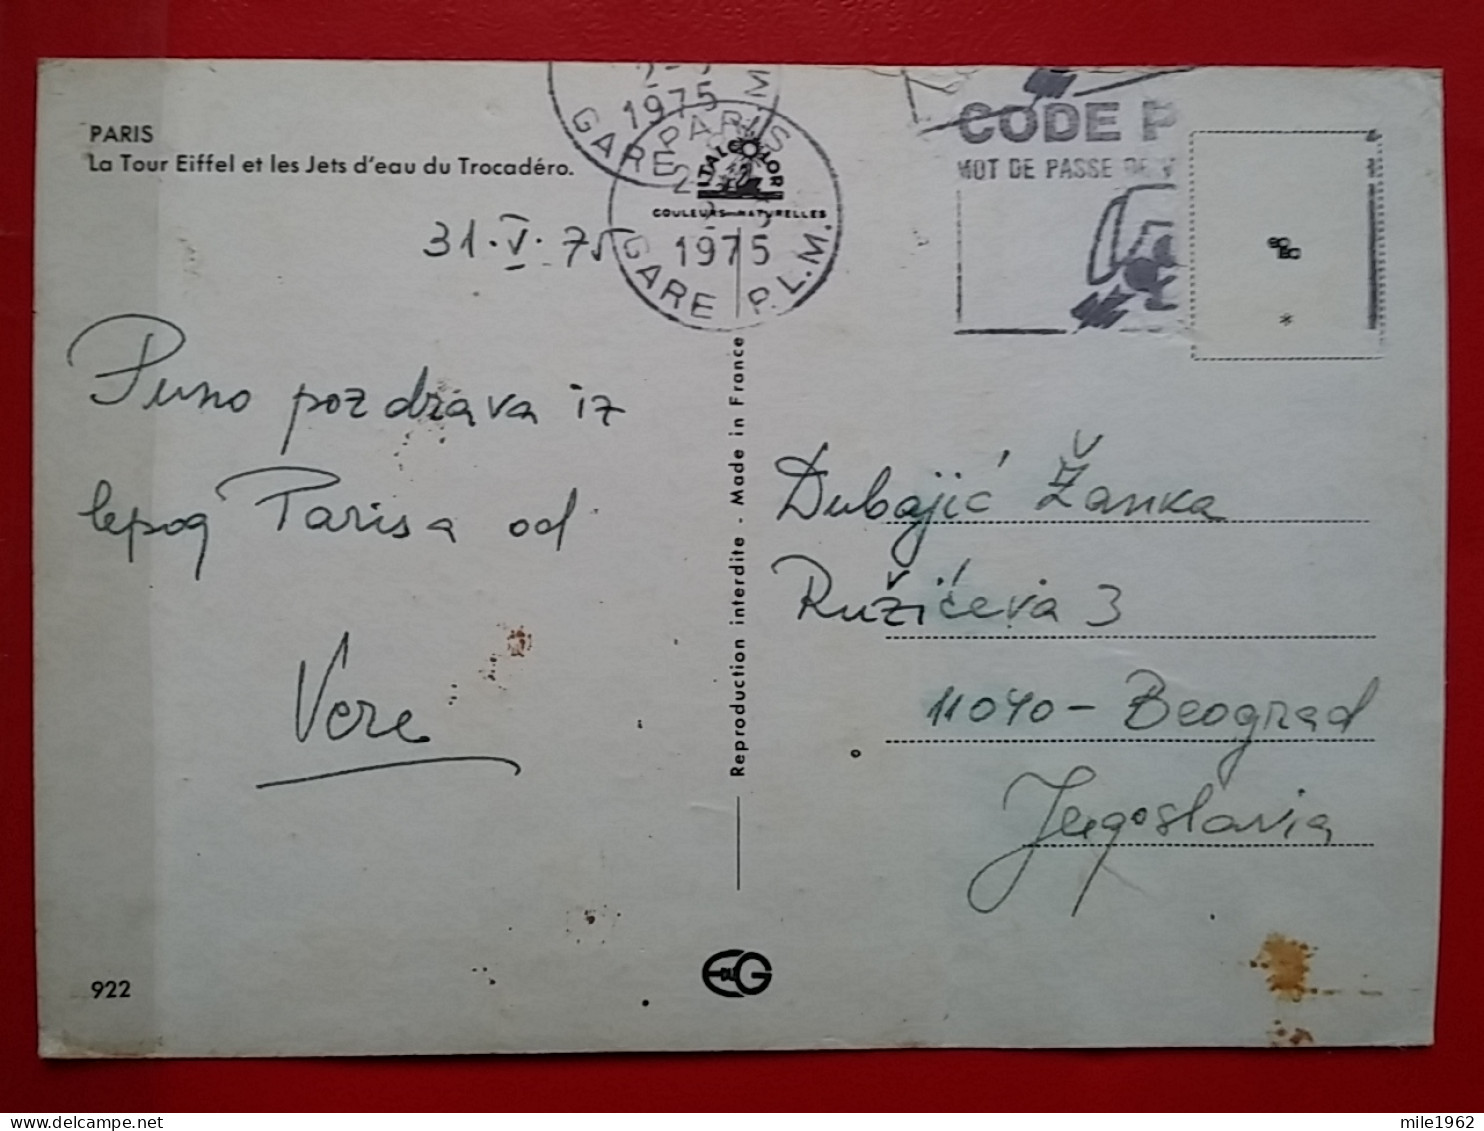 PARIS
La Tour Eiffel et les Jets d'eau du Trocadéro.
1975
GARE
M
PARIS
ITALCOLOR
COULEURS NATURELLES
1975
GARE P.L.M.
CODE P
MOT DE PASSE DE V
31.V.75
Puno pozdrava iz
lepog Parisa od
Vere
Reproduction interdite - Made in France
Dubajić Žanka
Ružićeva 3
11040 - Beograd
Jugoslavia
922
EDUG
mile1962